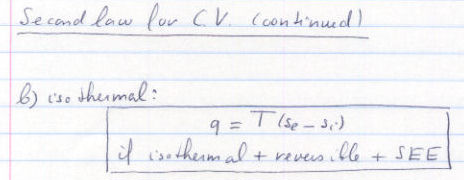 Second law for C.V. (continued)
b) isothermal:
q = T(se - si)
if isothermal + reversible + SEE